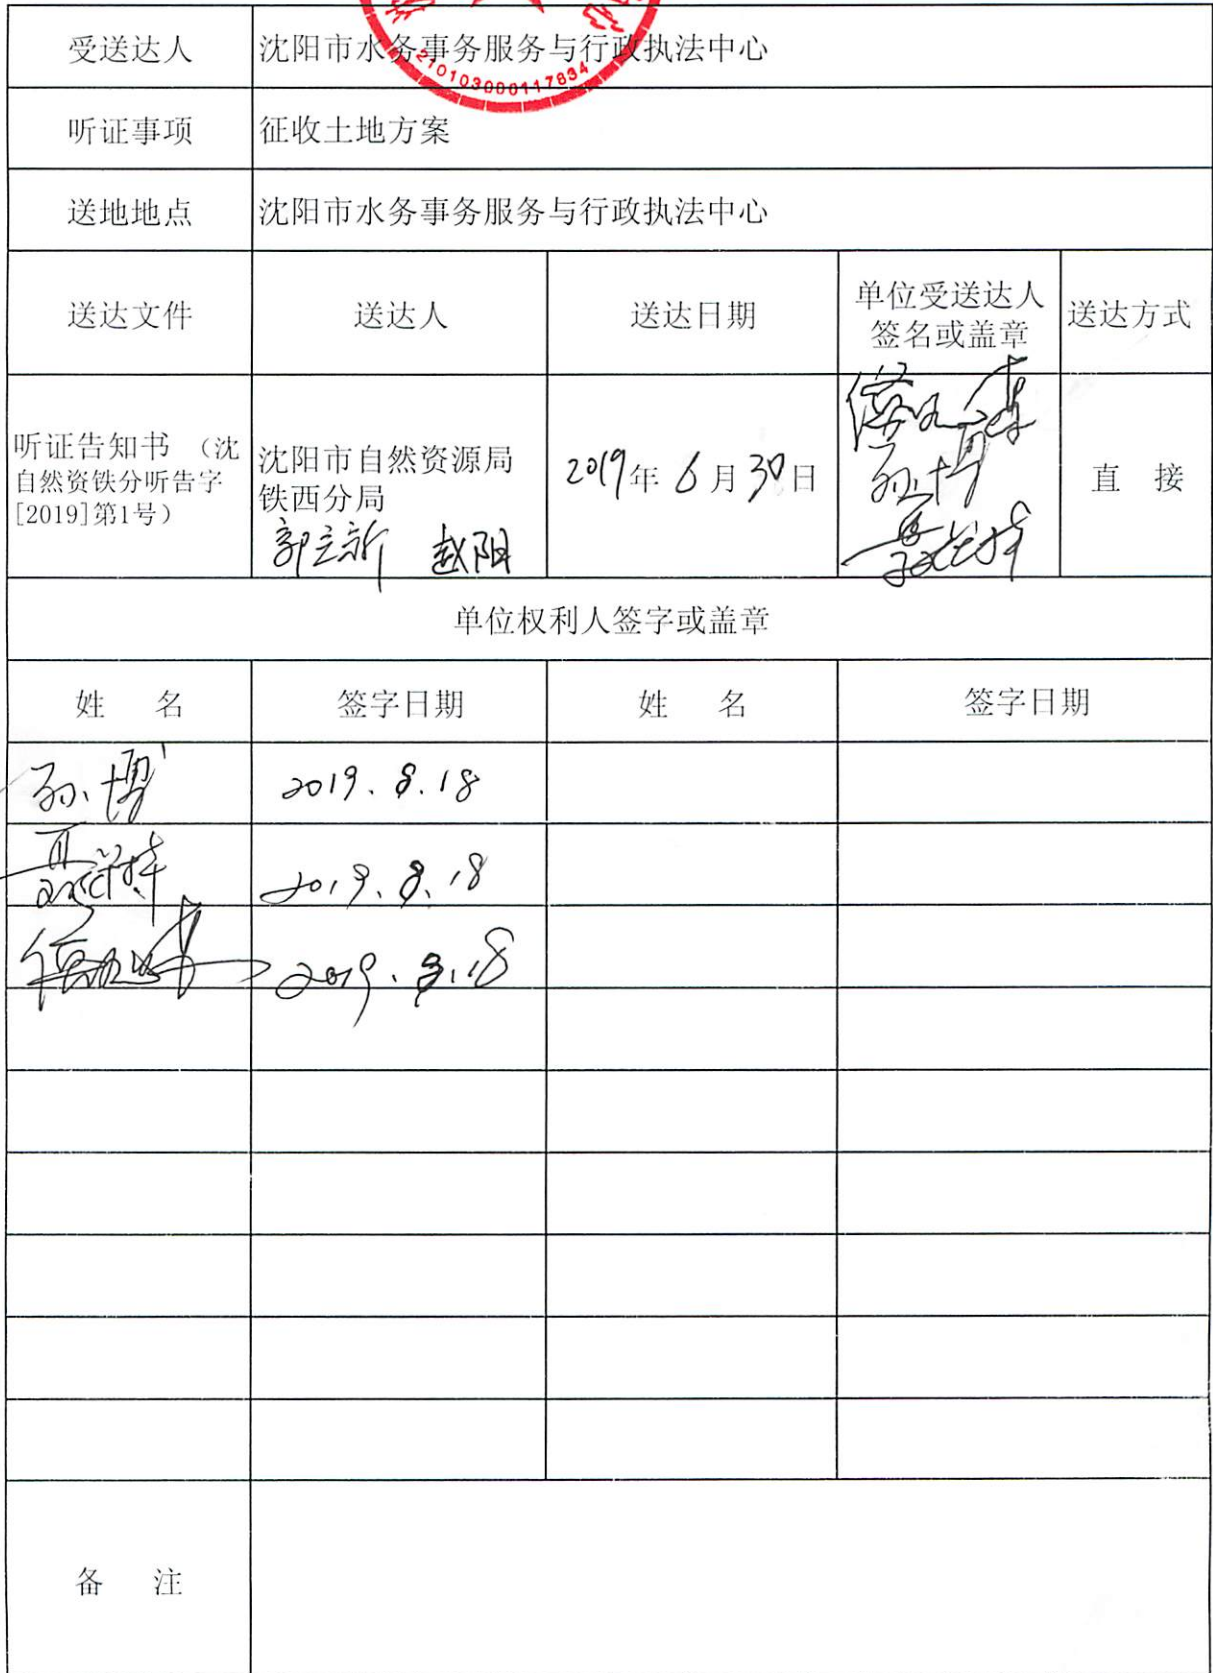 受送达人 沈阳市水务事务服务与行政执法中心
2101030000117834
听证事项 征收土地方案
送地地点 沈阳市水务事务服务与行政执法中心
送达文件 送达人 送达日期 单位受送达人 签名或盖章 送达方式
听证告知书 （沈
自然资铁分听告字
[2019]第1号）
沈阳市自然资源局
铁西分局
郭立新 赵阳
2019年6月30日
孙博
直 接
单位权利人签字或盖章
姓 名 签字日期 姓 名 签字日期
孙博 2019.8.18
2019.8.18
2019.8.18
备 注